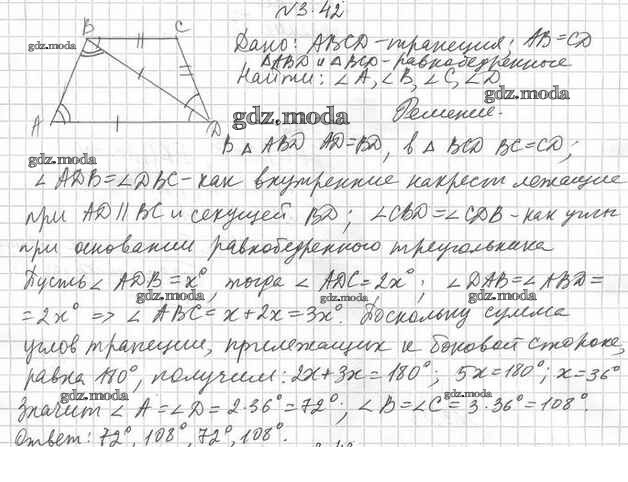 №3.42
B C
Дано: ABCD - трапеция; AB=CD
gdz.moda
△ABD и △BCD - равнобедренные
Найти: ∠A, ∠B, ∠C, ∠D
gdz.moda
gdz.moda
Решение.
A D
В △ ABD AD=BD, в △ BCD BC=CD;
gdz.moda
∠ADB=∠DBC - как внутренние накрест лежащие
при AD || BC и секущей BD; ∠CBD=∠CDB - как углы
при основании равнобедренного треугольника
Пусть ∠ADB = x°, тогда ∠ADC=2x°; ∠DAB=∠ABD=
gdz.moda gdz.moda gdz.moda
=2x° => ∠ABC=x+2x=3x°. Поскольку сумма
углов трапеции, прилежащих к боковой стороне,
равна 180°, получим: 2x+3x=180°; 5x=180°; x=36°
gdz.moda gdz.moda
Значит ∠A=∠D=2·36°=72°; ∠B=∠C=3·36°=108°.
Ответ: 72°, 108°, 72°, 108°.